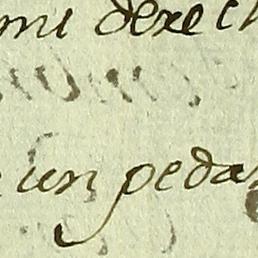 mi derech
un peda